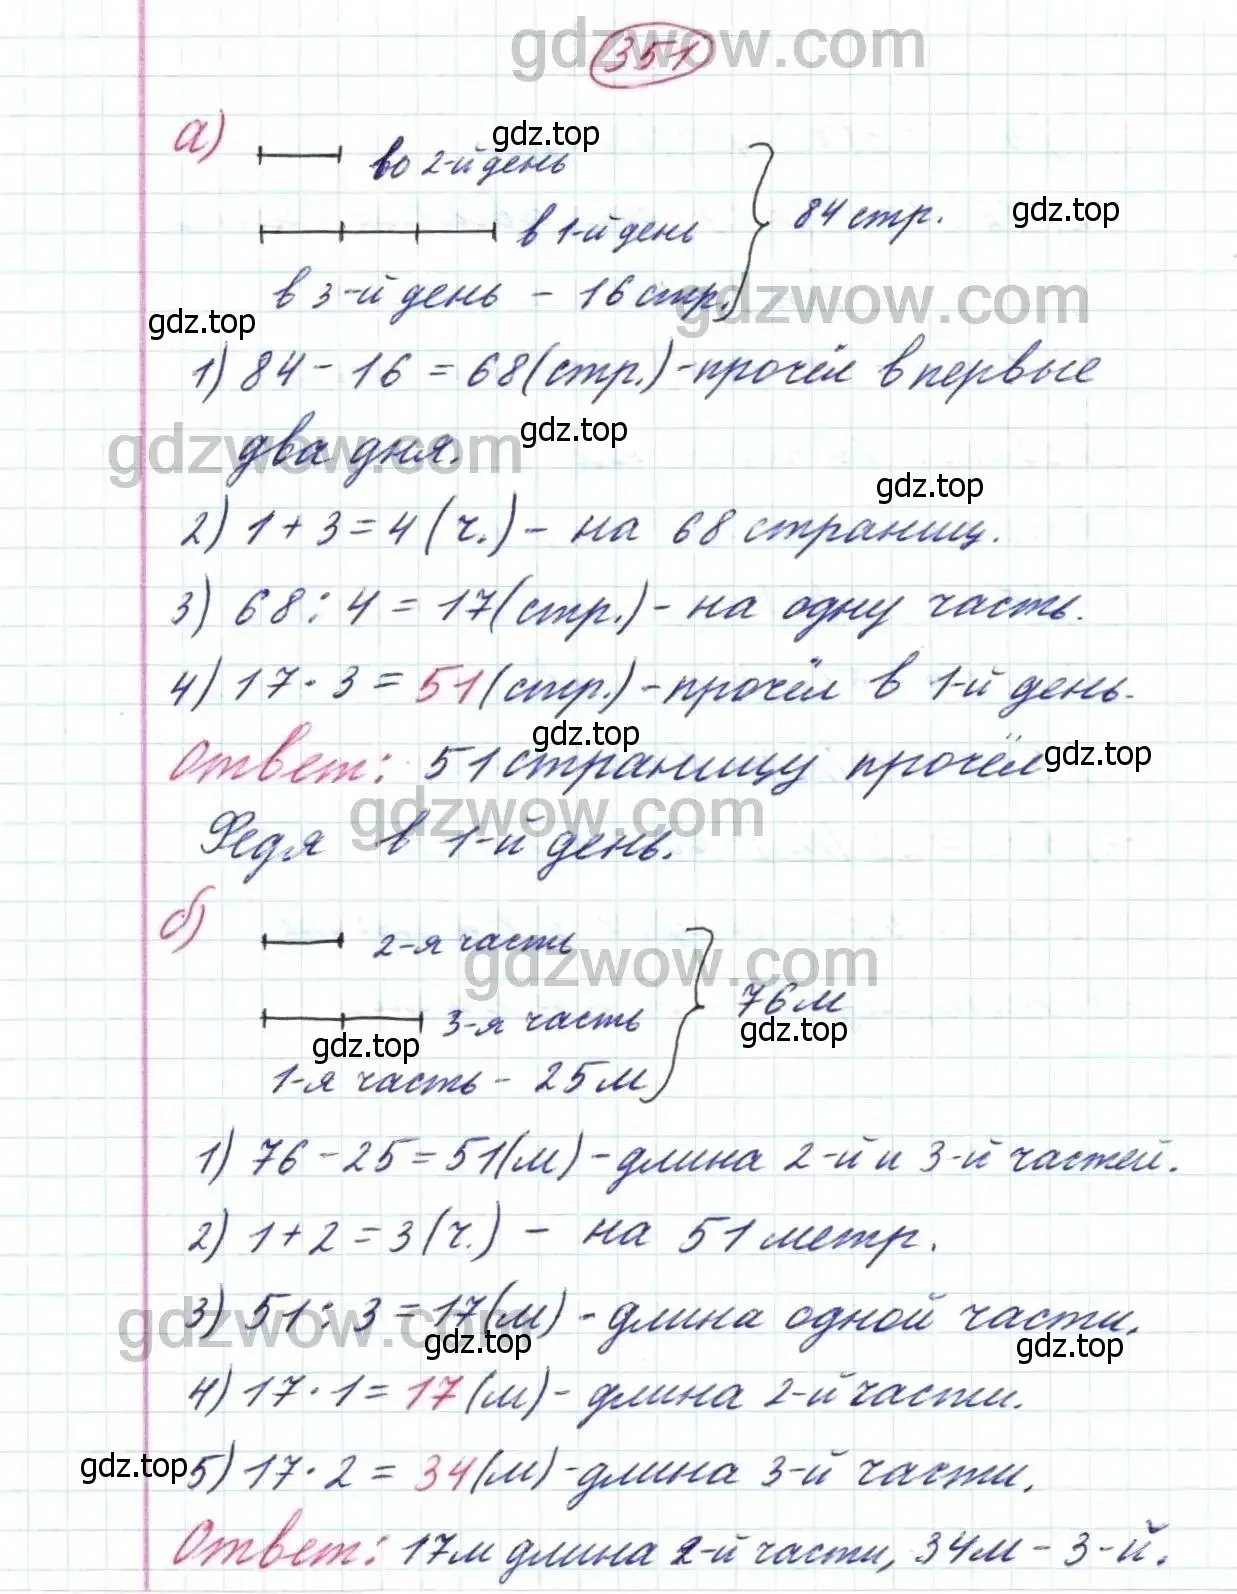 gdzwow.com
351
а)
во 2-й день
gdz.top
в 1-й день
84 стр.
gdz.top
в 3-й день - 16 стр.
gdzwow.com
gdz.top
1) 84 - 16 = 68 (стр.) - прочёл в первые
gdzwow.com
два дня.
gdz.top
gdz.top
2) 1 + 3 = 4 (ч.) - на 68 страниц.
3) 68 : 4 = 17 (стр.) - на одну часть.
4) 17 · 3 = 51 (стр.) - прочёл в 1-й день.
gdz.top
gdz.top
Ответ: 51 страницу прочёл
gdzwow.com
Федя в 1-й день.
б)
2-я часть
gdzwow.com
3-я часть
76 м
gdz.top
gdz.top
1-я часть - 25 м
1) 76 - 25 = 51 (м) - длина 2-й и 3-й частей.
2) 1 + 2 = 3 (ч.) - на 51 метр.
gdzwow.com
3) 51 : 3 = 17 (м) - длина одной части.
gdz.top
gdz.top
4) 17 · 1 = 17 (м) - длина 2-й части.
gdz.top
5) 17 · 2 = 34 (м) - длина 3-й части.
Ответ: 17 м длина 2-й части, 34 м - 3-й.